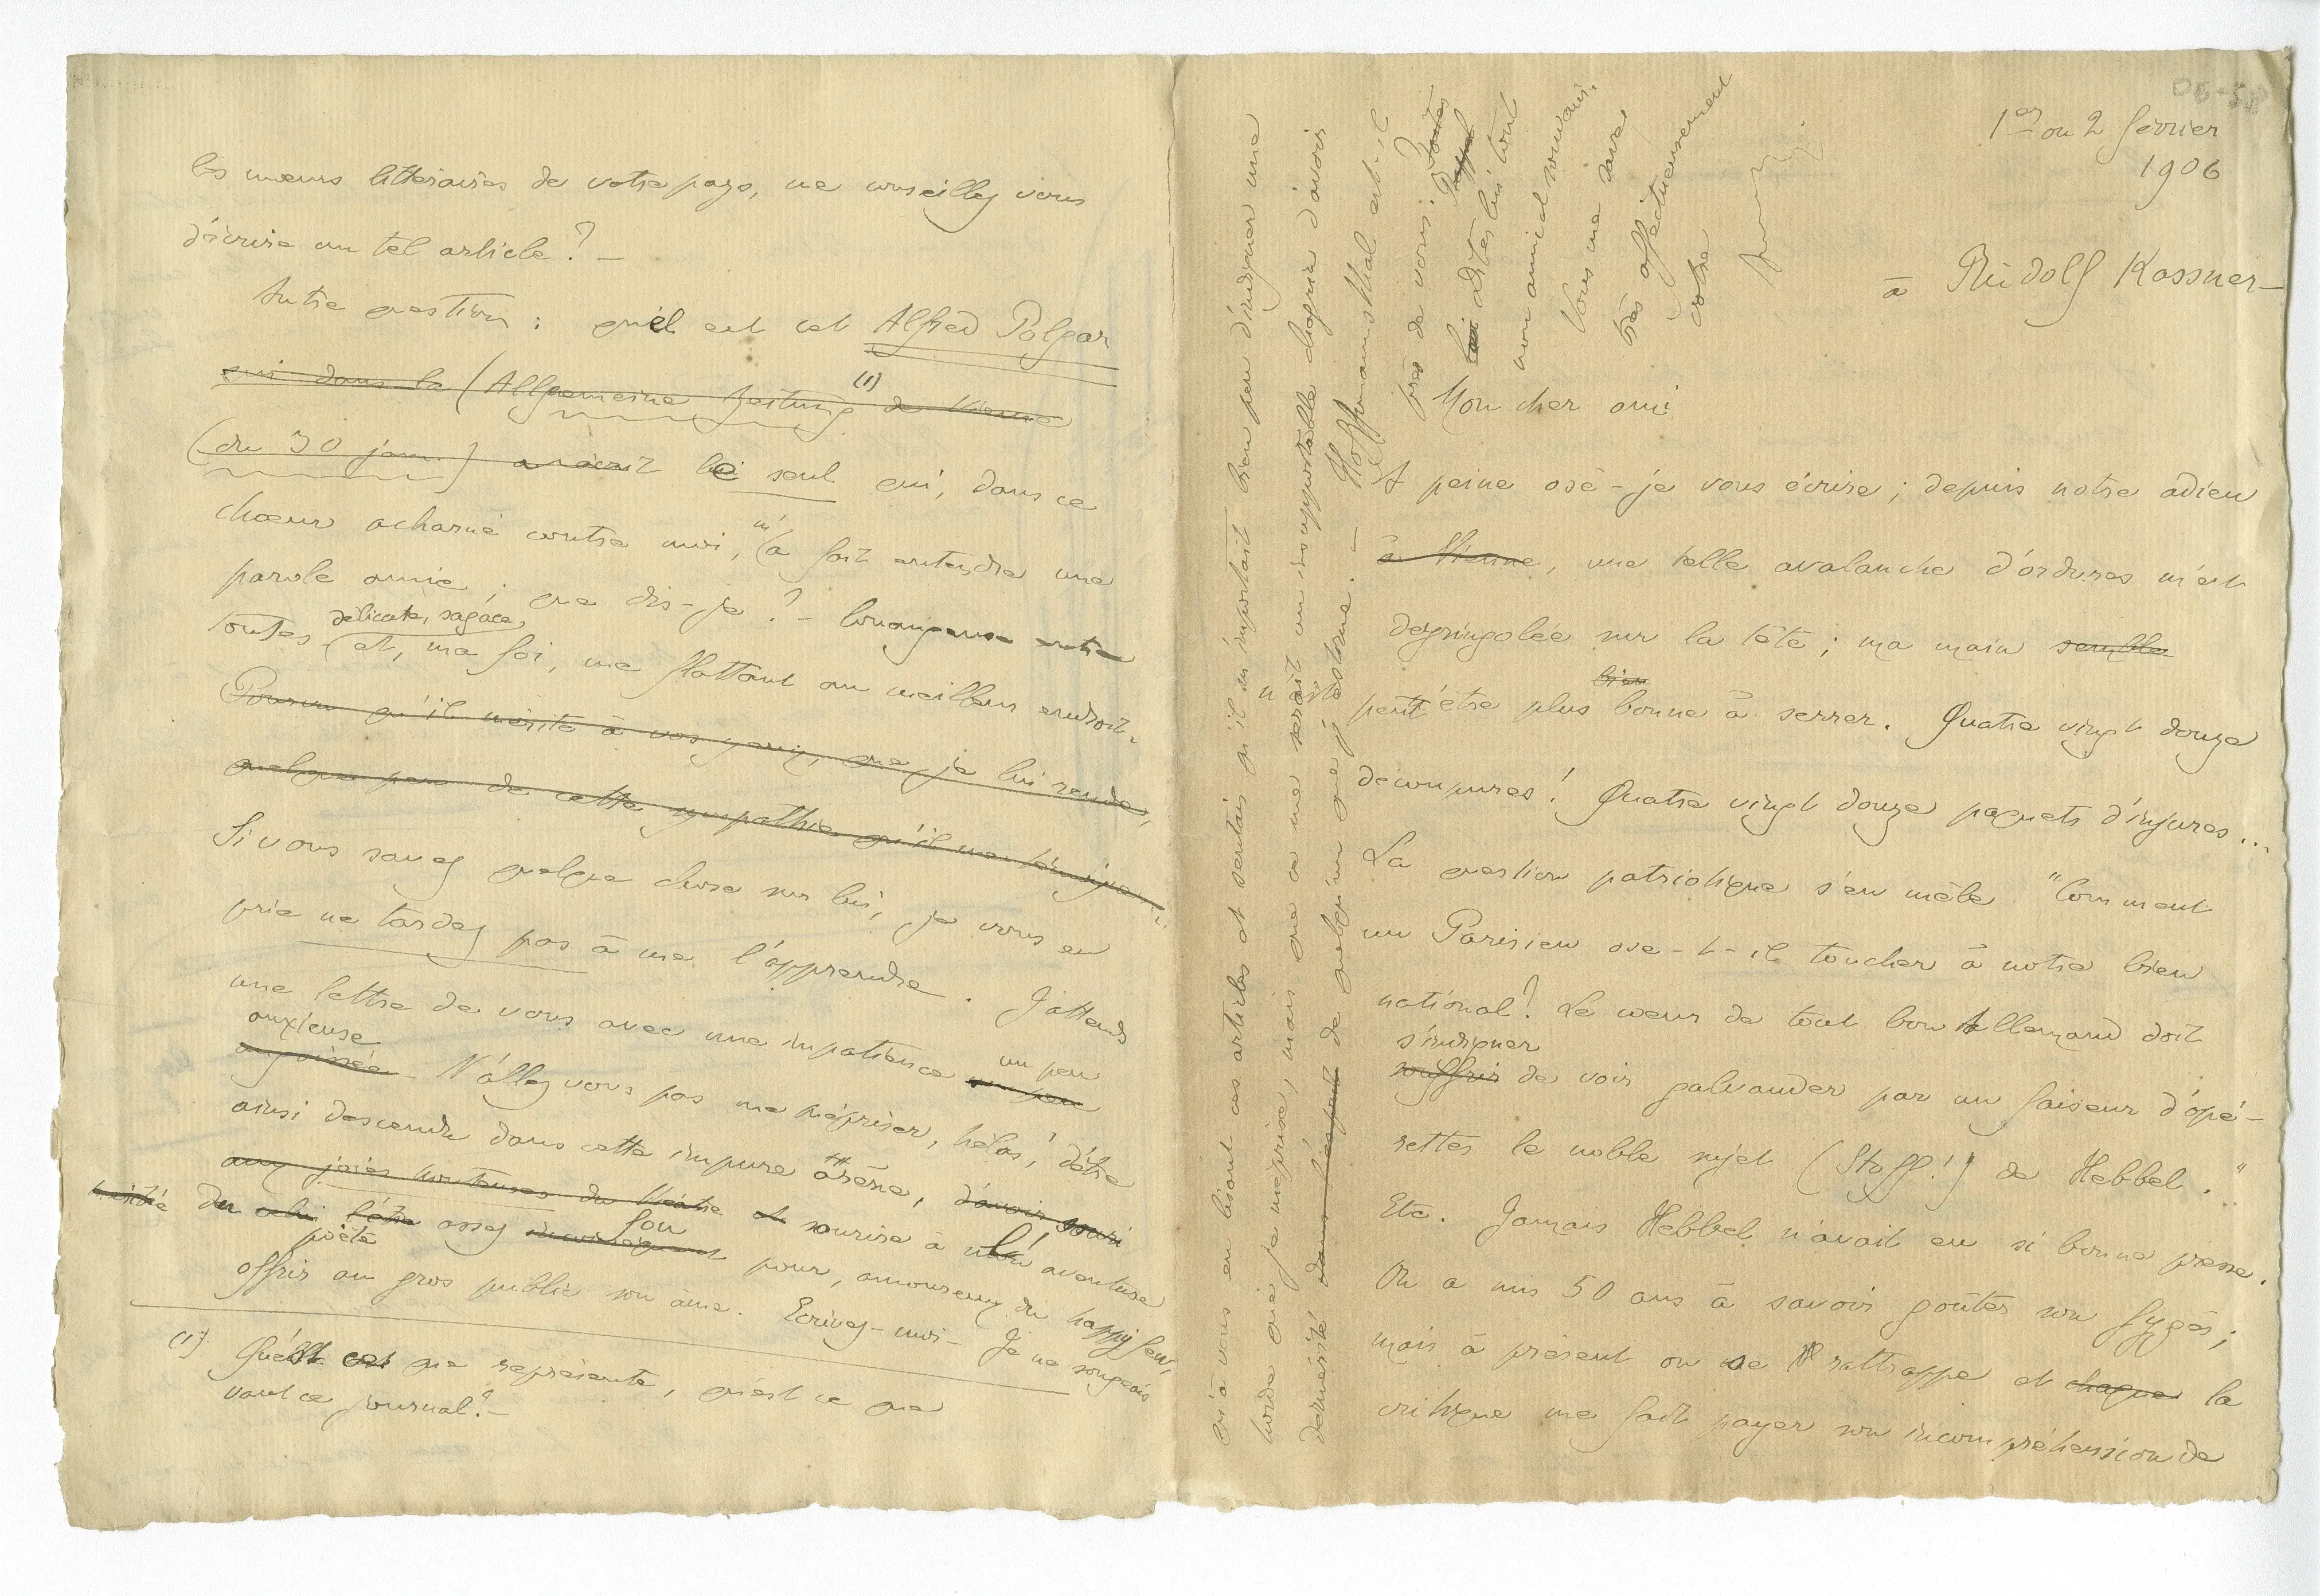 1er ou 2 février
1906
à Rudolf Kassner—
Mon cher ami
A peine osé-je vous écrire ; depuis notre adieu
à Vienne, une telle avalanche d'ordures m'est
dégringolée sur la tête ; ma main semble
n'est
bien
peut être plus bonne à serrer. Quatre vingt douze
découpures ! Quatre vingt douze paquets d'injures...
La question patriotique s'en mêle "Comment
un Parisien ose-t-il toucher à notre bien
national ? Le cœur de tout bon Allemand doit
s'indigner
souffrir de voir galvauder par un faiseur d'opé-
rettes le noble sujet (Stoff !) de Hebbel."
Etc. Jamais Hebbel n'avait eu si bonne presse.
On a mis 50 ans à savoir goûter son Gygès ;
mais à présent on se rattrappe et chaque la
critique me fait payer son incompréhension de
les mœurs littéraires de votre pays, me conseillez vous
d'écrire un tel article ? —
Autre question : quel est cet Alfred Polgar
qui dans la (Allgemeine Zeitung (1) de Vienne
(du 30 janv.) a écrit le seul qui, dans ce
chœur acharné contre moi, m'a fait entendre une
parole amie ; que dis-je ? — louangeuse entre
délicate, sagace,
toutes et, ma foi, me flattant au meilleur endroit.
Pourvu qu'il mérite à vos yeux, que je lui rende,
quelque peu de cette sympathie qu'il me témoigne
Si vous savez quelque chose sur lui, je vous en
prie ne tardez pas à me l'apprendre. J'attends
une lettre de vous avec une impatience un peu
un peu
anxieuse
angoissée N'allez vous pas me mépriser, hélas ! d'être
ainsi descendu dans cette impure arène, d'avoir souri
aux joies honteuses du théâtre et sourire à l' aventure
du assez fou pour, amoureux du happy few,
poète
offrir au gros public son âme. Ecrivez-moi — Je ne songeais
(1) Qu'est ce que représente, qu'est ce que
vaut ce journal ? —
qu'à vous en lisant ces articles et sentais qu'il m'importait bien peu d'indigner une
horde que je méprise, mais que ce me serait un insupportable chagrin d'avoir
démérité dans l'esprit de quelqu'un que j'estime. —
Hoffmannsthal est-il
près de vous ?
lui Dites lui tout
mon amical souvenir.
Vous me savez
très affectueusement
votre